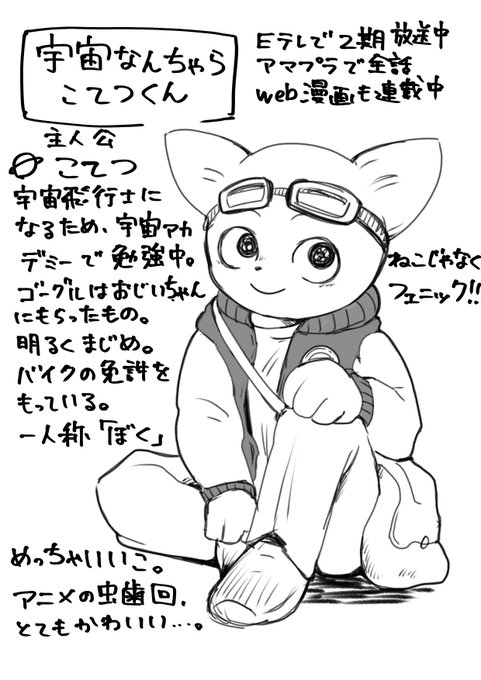 宇宙なんちゃら
こてつくん
Eテレで2期放送中
アマプラで全話
web漫画も連載中
主人公
こてつ
宇宙飛行士に
なるため、宇宙アカ
デミーで勉強中。
ゴーグルはおじいちゃん
にもらったもの。
明るくまじめ。
バイクの免許を
もっている。
一人称「ぼく」
ねこじゃなく
フェニック!!
めっちゃいいこ。
アニメの虫歯回、
とてもかわいい…。